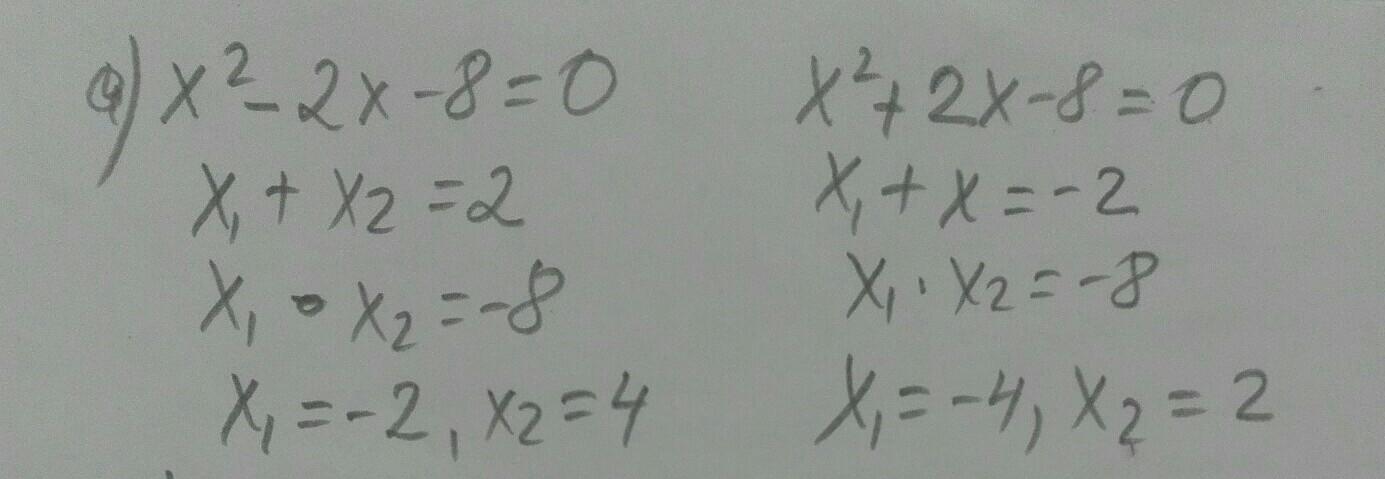 a) x² - 2x - 8 = 0
x₁ + x₂ = 2
x₁ • x₂ = -8
x₁ = -2, x₂ = 4
x² + 2x - 8 = 0
x₁ + x = -2
x₁ · x₂ = -8
x₁ = -4, x₂ = 2